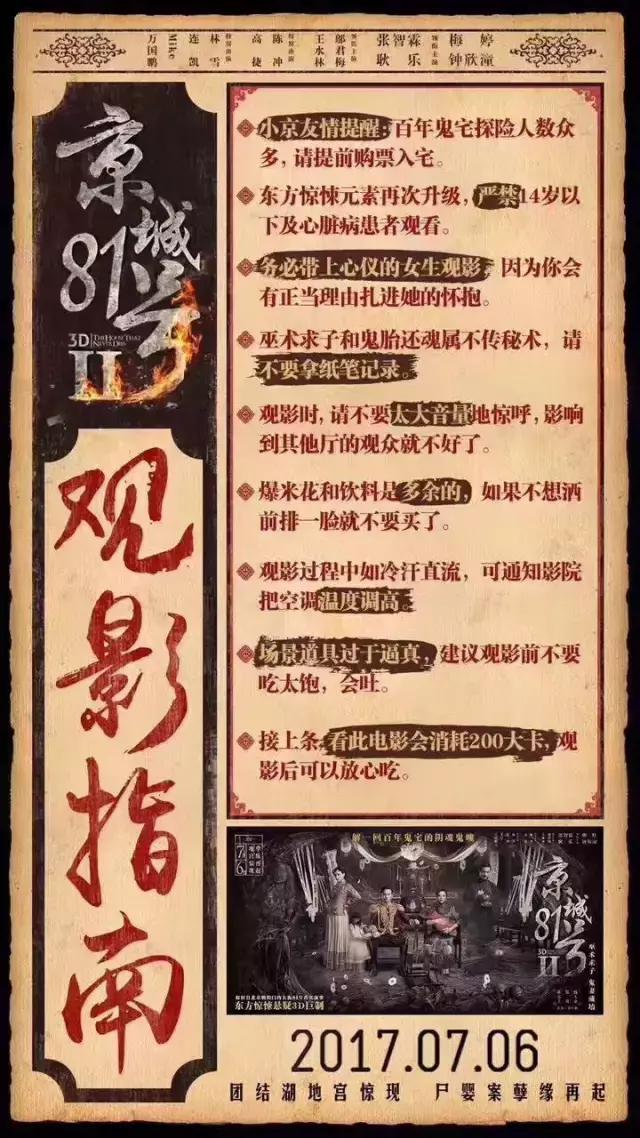 万国鹏
Mike
连凯
林雪
特别出演
高捷
陈冲
特别出演
王水林
邬君梅
领衔主演
张智霖
耿乐
领衔主演
梅婷
钟欣潼
京城81号
3D THE HOUSE THAT NEVER DIES
II
观影指南
小京友情提醒:百年鬼宅探险人数众
多,请提前购票入宅。
东方惊悚元素再次升级,严禁14岁以
下及心脏病患者观看。
务必带上心仪的女生观影,因为你会
有正当理由扎进她的怀抱。
巫术求子和鬼胎还魂属不传秘术,请
不要拿纸笔记录。
观影时,请不要太大音量地惊呼,影响
到其他厅的观众就不好了。
爆米花和饮料是多余的,如果不想洒
前排一脸就不要买了。
观影过程中如冷汗直流,可通知影院
把空调温度调高。
场景道具过于逼真,建议观影前不要
吃太饱,会吐。
接上条,看此电影会消耗200大卡,观
影后可以放心吃。
解一回百年鬼宅的阴魂鬼嗅
京城81号
3D
II
巫术求子 鬼妻藏墙
东方惊悚悬疑3D巨制
2017.07.06
团结湖地宫惊现 尸婴案孽缘再起